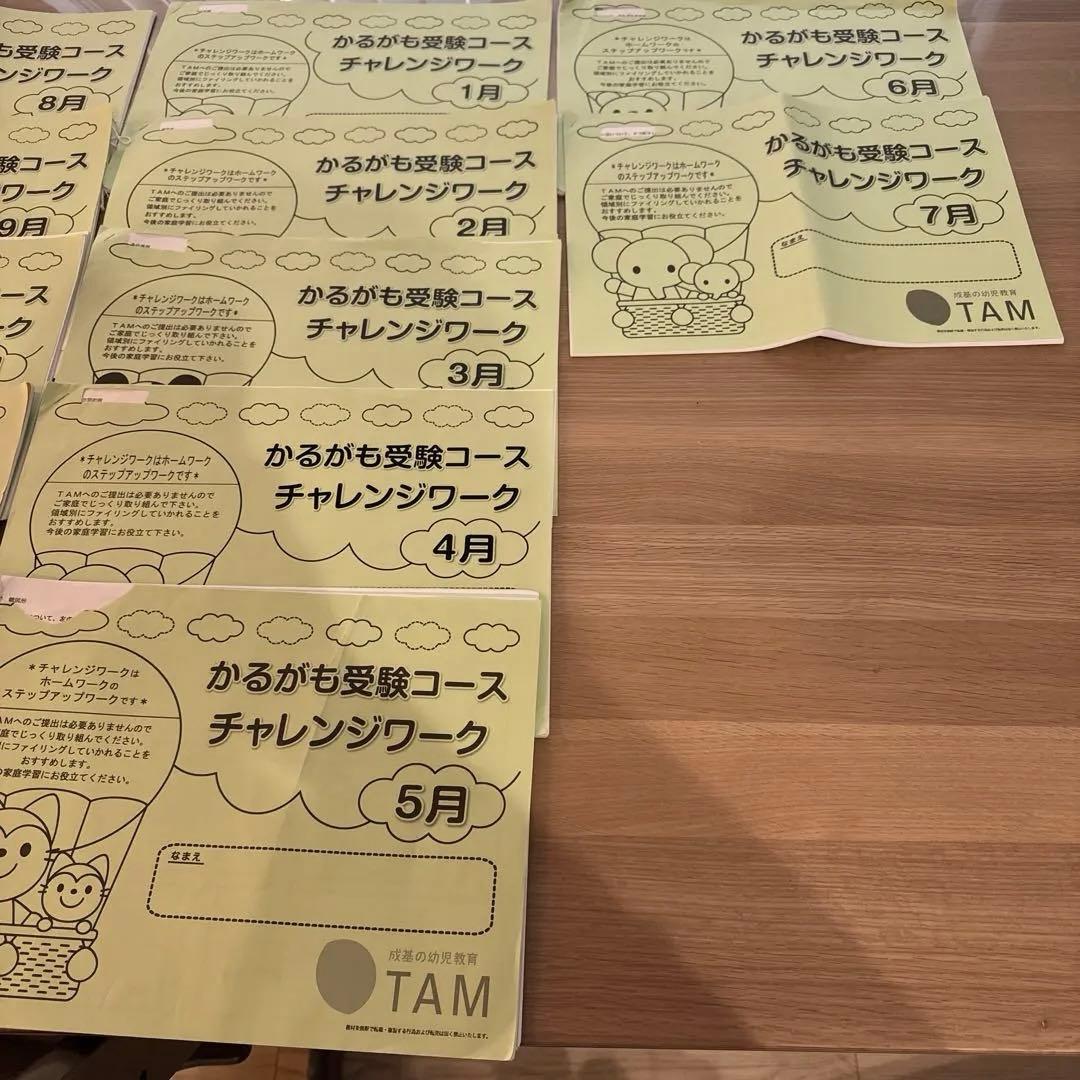 も受験コース
ンジワーク
8月
験コース
ワーク
9月
ース
ーク
＊チャレンジワークはホームワーク
のステップアップワークです＊
TAMへのご提出は必要ありませんので
ご家庭でじっくり取り組んでください。
領域別にファイリングしていかれることを
おすすめします。
今後の家庭学習にお役立てください。
かるがも受験コース
チャレンジワーク
1月
＊チャレンジワークはホームワーク
のステップアップワークです＊
TAMへのご提出は必要ありませんので
ご家庭でじっくり取り組んでください。
領域別にファイリングしていかれることを
おすすめします。
今後の家庭学習にお役立てください。
かるがも受験コース
チャレンジワーク
2月
＊チャレンジワークはホームワーク
のステップアップワークです＊
TAMへのご提出は必要ありませんので
ご家庭でじっくり取り組んで下さい。
領域別にファイリングしていかれることを
おすすめします。
今後の家庭学習にお役立て下さい。
かるがも受験コース
チャレンジワーク
3月
＊チャレンジワークはホームワーク
のステップアップワークです＊
TAMへのご提出は必要ありませんので
ご家庭でじっくり取り組んで下さい。
領域別にファイリングしていかれることを
おすすめします。
今後の家庭学習にお役立て下さい。
かるがも受験コース
チャレンジワーク
4月
ついて、
＊チャレンジワークは
ホームワークの
ステップアップワークです＊
AMへのご提出は必要ありませんので
庭でじっくり取り組んでください。
にファイリングしていかれることを
おすすめします。
家庭学習にお役立てください。
かるがも受験コース
チャレンジワーク
5月
なまえ
成基の幼児教育
TAM
＊チャレンジワークは
ホームワークの
ステップアップワークです＊
TAMへのご提出は必要ありませんので
ご家庭でじっくり取り組んでください。
領域別にファイリングしていかれることを
おすすめします。
今後の家庭学習にお役立てください。
かるがも受験コース
チャレンジワーク
6月
＊チャレンジワークはホームワーク
のステップアップワークです＊
TAMへのご提出は必要ありませんので
ご家庭でじっくり取り組んでください。
領域別にファイリングしていかれることを
おすすめします。
今後の家庭学習にお役立てください。
かるがも受験コース
チャレンジワーク
7月
なまえ
成基の幼児教育
TAM